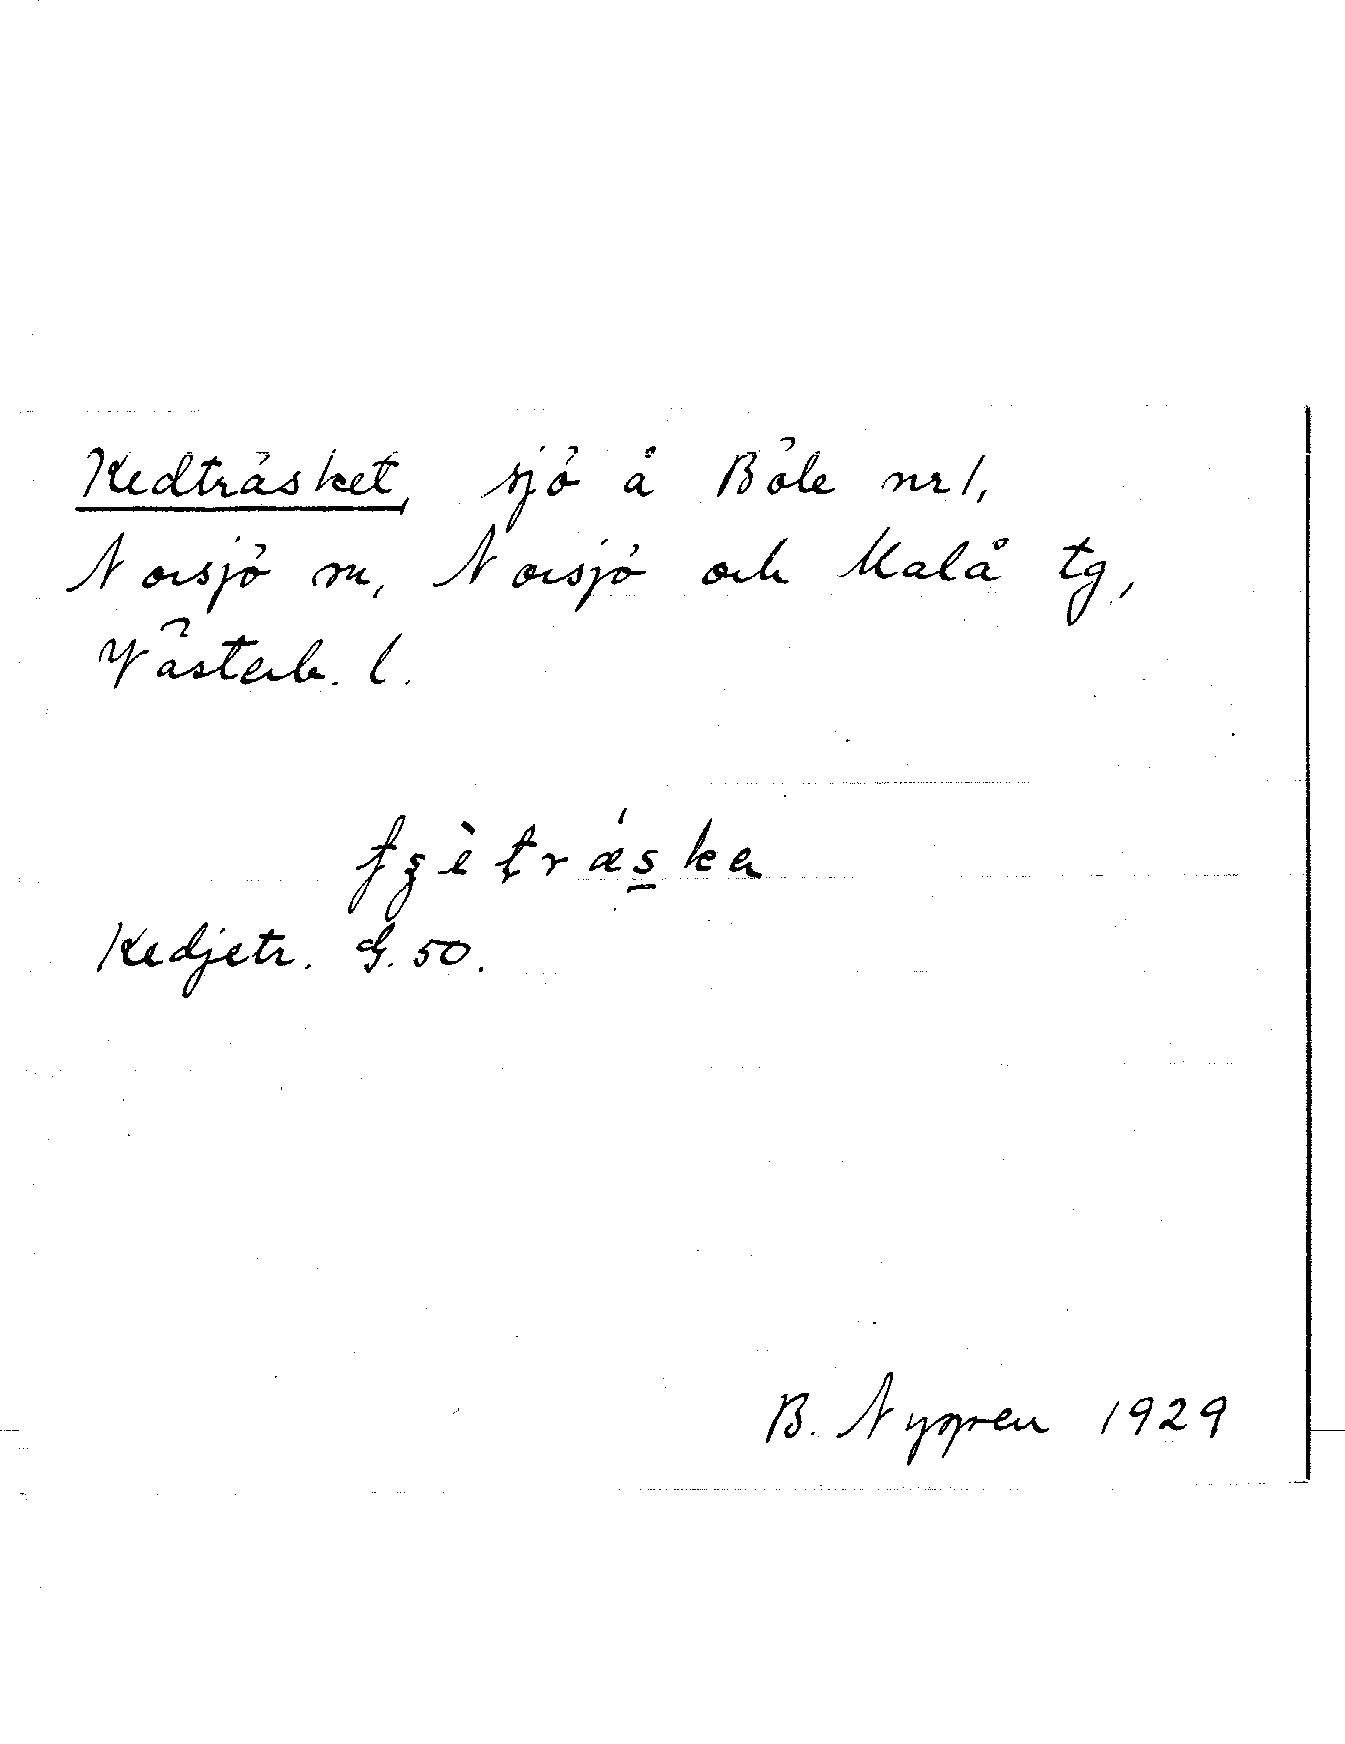 Kedträsket, sjö å Böle nr 1,
Norsjö sn, Norsjö och Malå tg,
Västerb. l.
Kedjetr. G. 50.
B. Nygren 1929